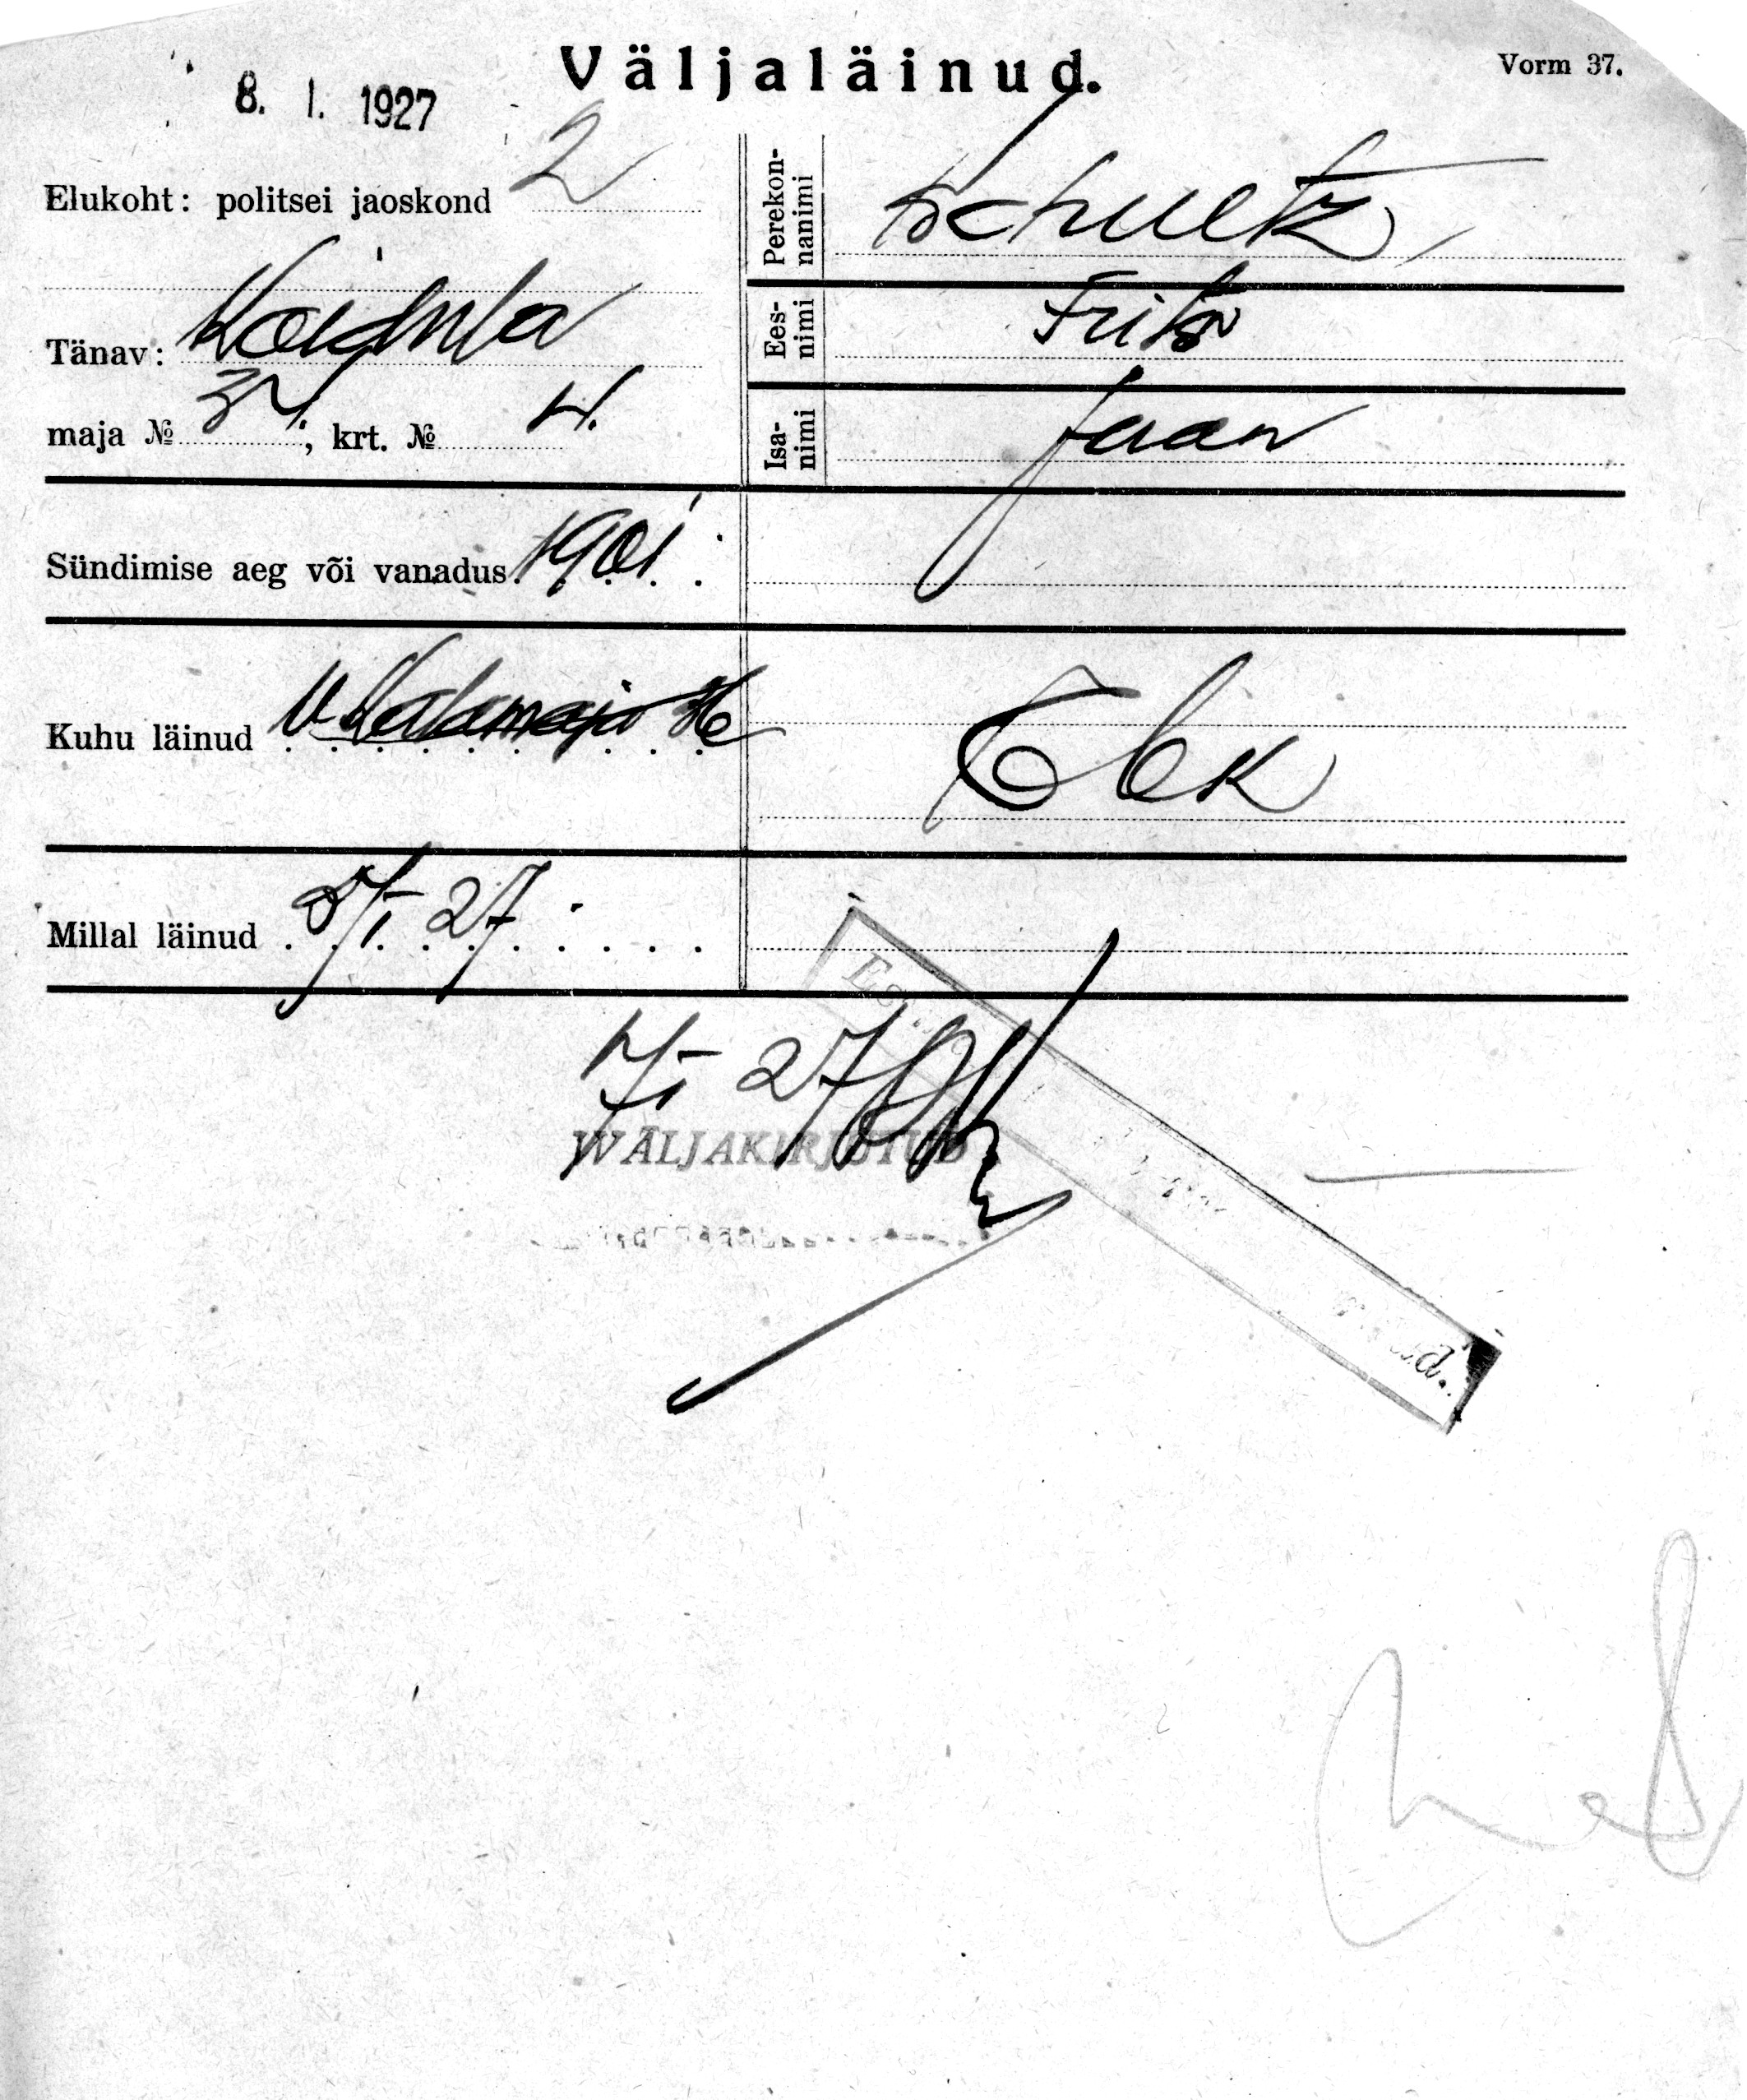 Väljaläinud.
Vorm 37.
8. I. 1927
Elukoht: politsei jaoskond 2
Tänav: Koidula
maja № 34; krt. № 4.
Perekonnanimi Schuetz
Eesnimi Frits
Isanimi Jaan
Sündimise aeg või vanadus 1901
Kuhu läinud V. Kalamaja
Millal läinud 5/I 27
7/I 27
WÄLJAKIRJUTUD